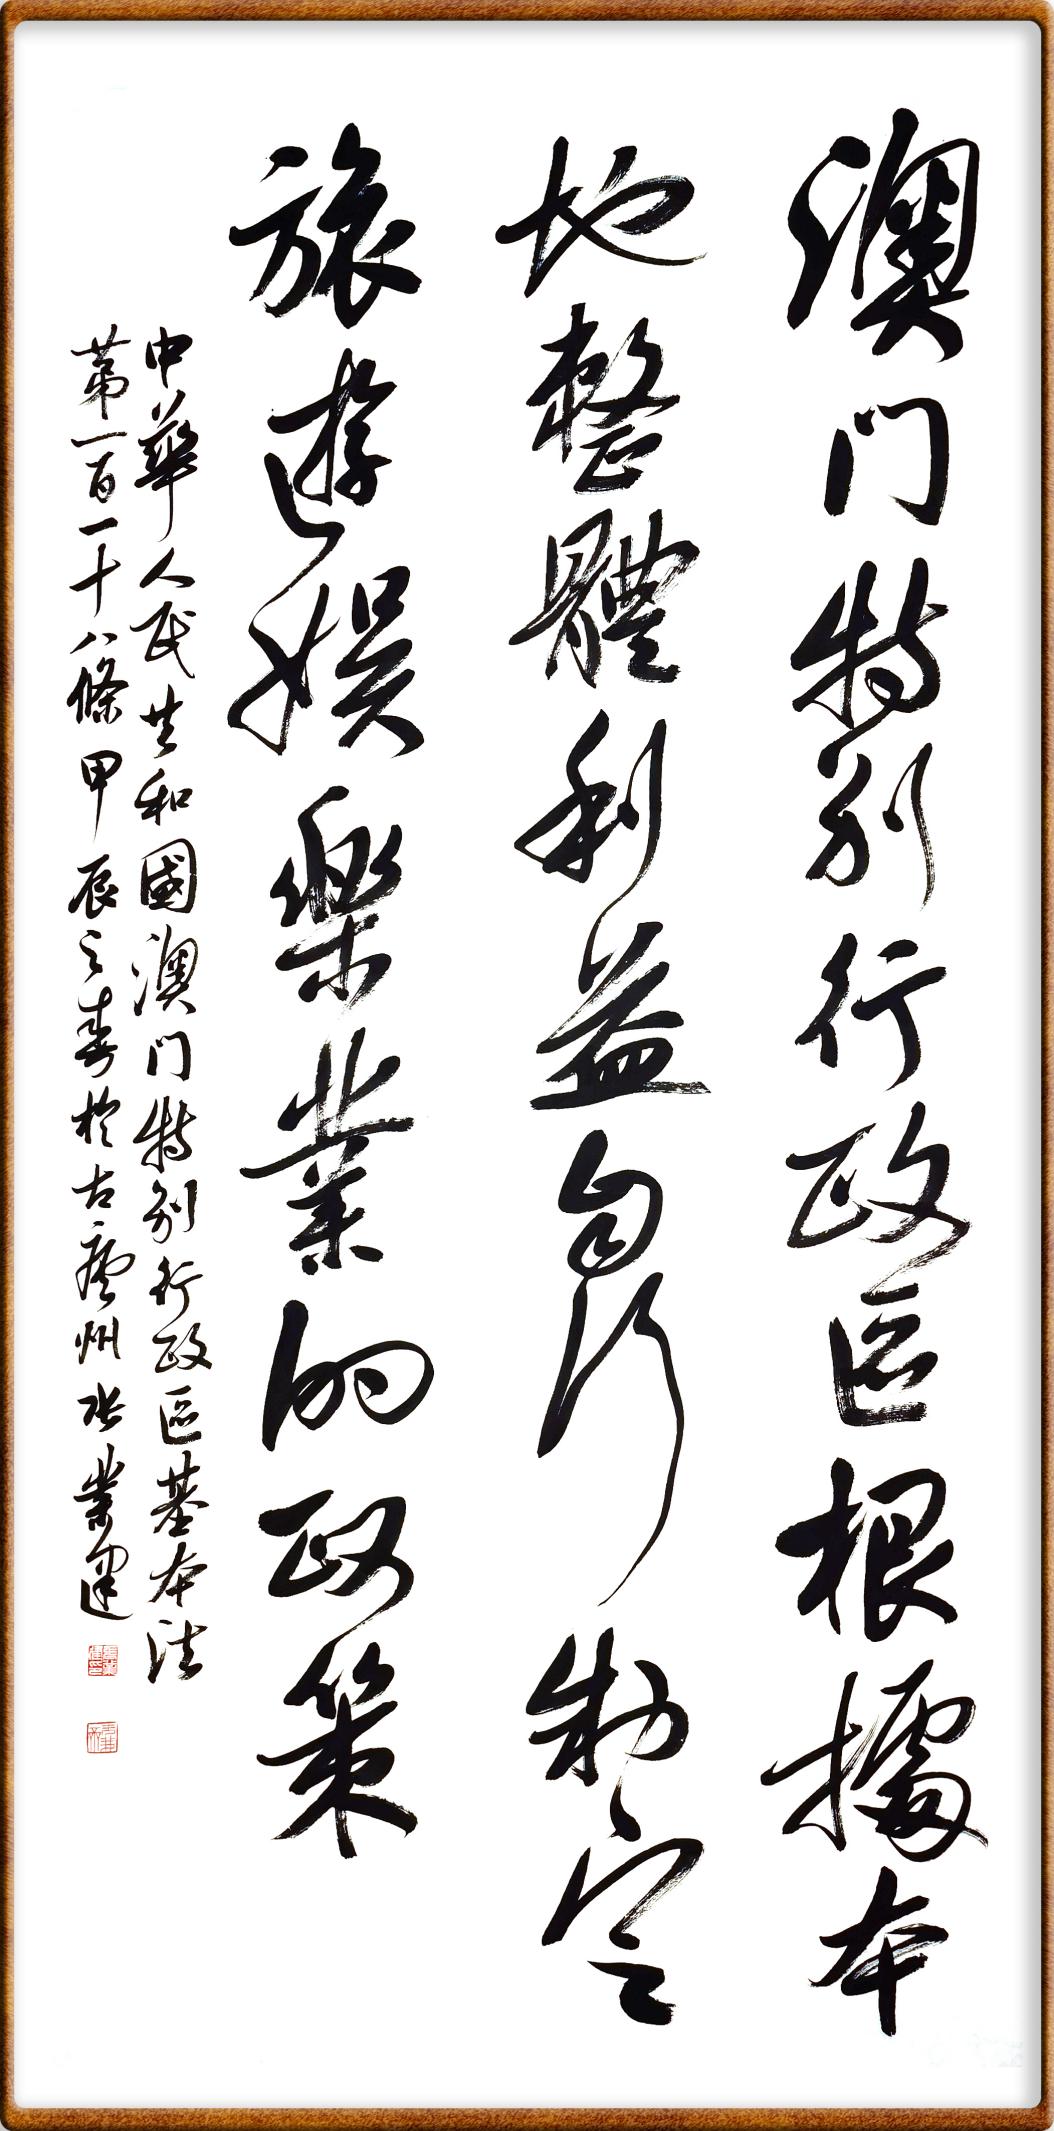 澳门特别行政區根據本
地整體利益自行制定
旅遊娱樂業的政策
中華人民共和國澳门特别行政區基本法
第一百一十八條甲辰之春於古州张業建